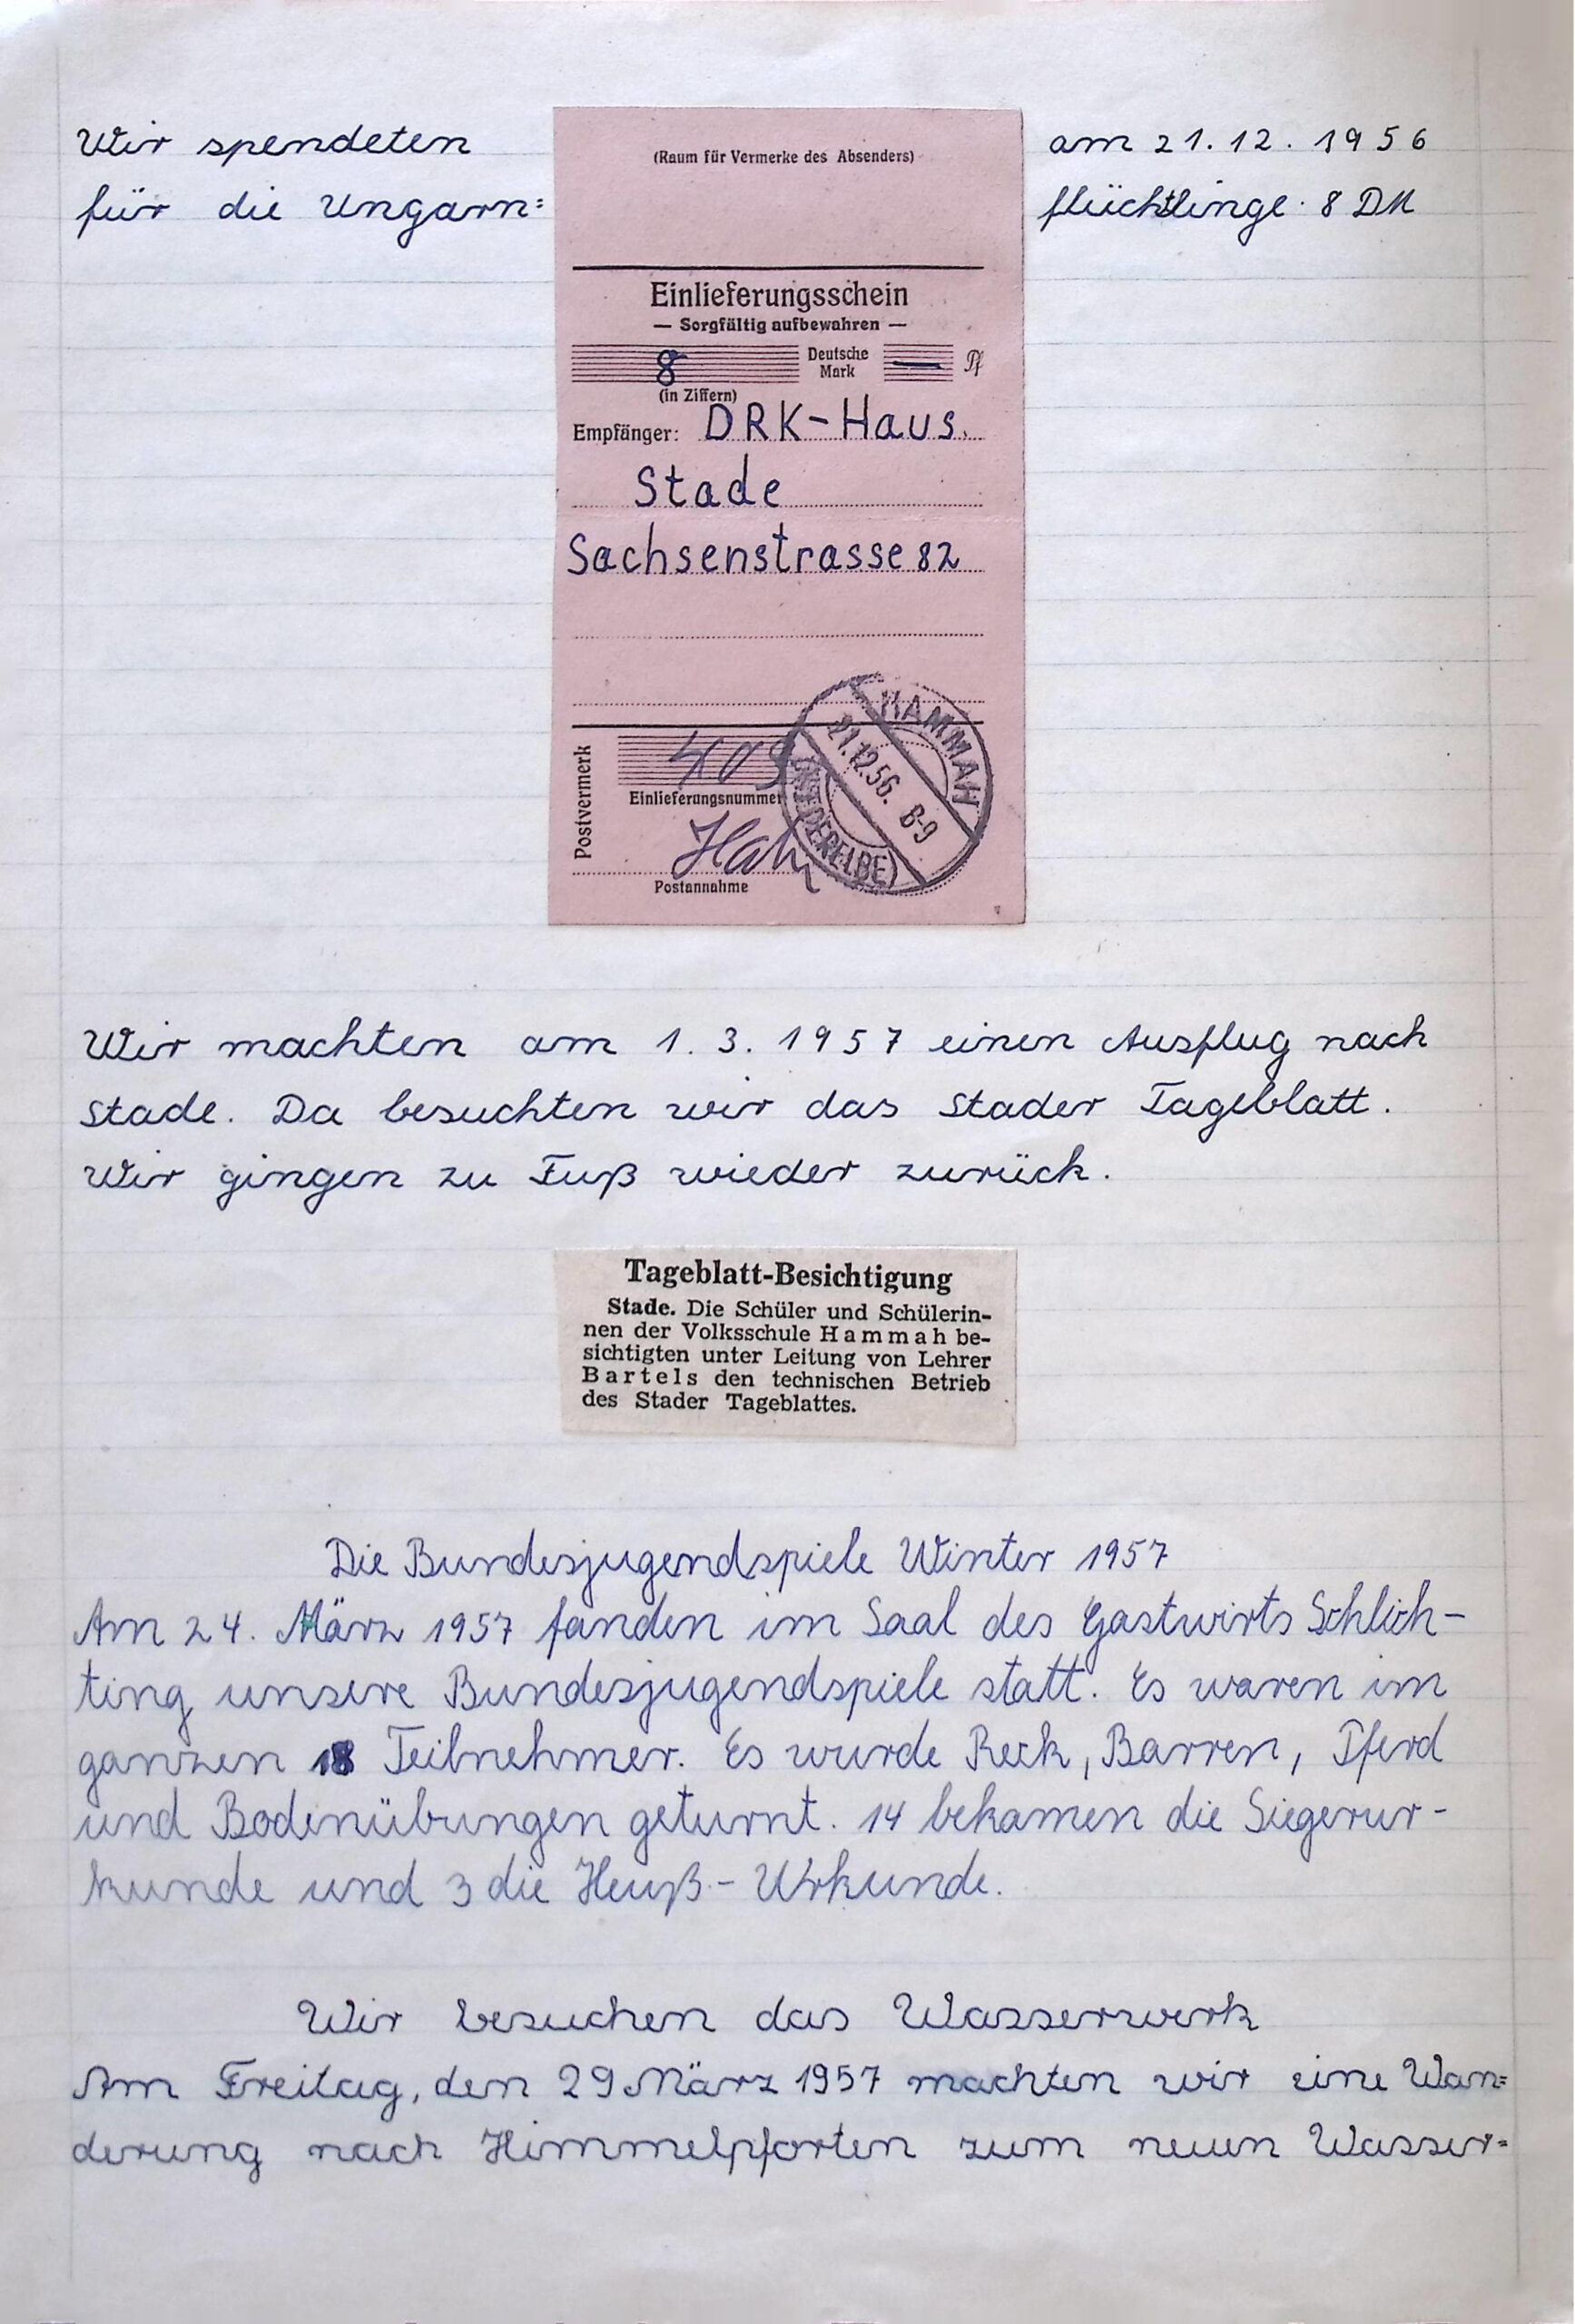 Wir spendeten am 21.12.1956
für die Ungarn= flüchtlinge 8 DM
(Raum für Vermerke des Absenders)
Einlieferungsschein
— Sorgfältig aufbewahren —
8 Deutsche Mark — Pf
(in Ziffern)
Empfänger: DRK-Haus
Stade
Sachsenstrasse 82
Postvermerk
409
Einlieferungsnummer
Hahn
Postannahme
HAMMAH
21.12.56. 8-9
(NIEDERELBE)
Wir machten am 1. 3. 1957 einen Ausflug nach
Stade. Da besuchten wir das Stader Tageblatt.
Wir gingen zu Fuß wieder zurück.
Tageblatt-Besichtigung
Stade. Die Schüler und Schülerin-
nen der Volksschule Hammah be-
sichtigten unter Leitung von Lehrer
Bartels den technischen Betrieb
des Stader Tageblattes.
Die Bundesjugendspiele Winter 1957
Am 24. März 1957 fanden im Saal des Gastwirts Schlich-
ting unsere Bundesjugendspiele statt. Es waren im
ganzen 18 Teilnehmer. Es wurde Reck, Barren, Pferd
und Bodenübungen geturnt. 14 bekamen die Siegerur-
kunde und 3 die Heuß-Urkunde.
Wir besuchen das Wasserwerk
Am Freitag, den 29 März 1957 machten wir eine Wan=
derung nach Himmelpforten zum neuen Wasser=